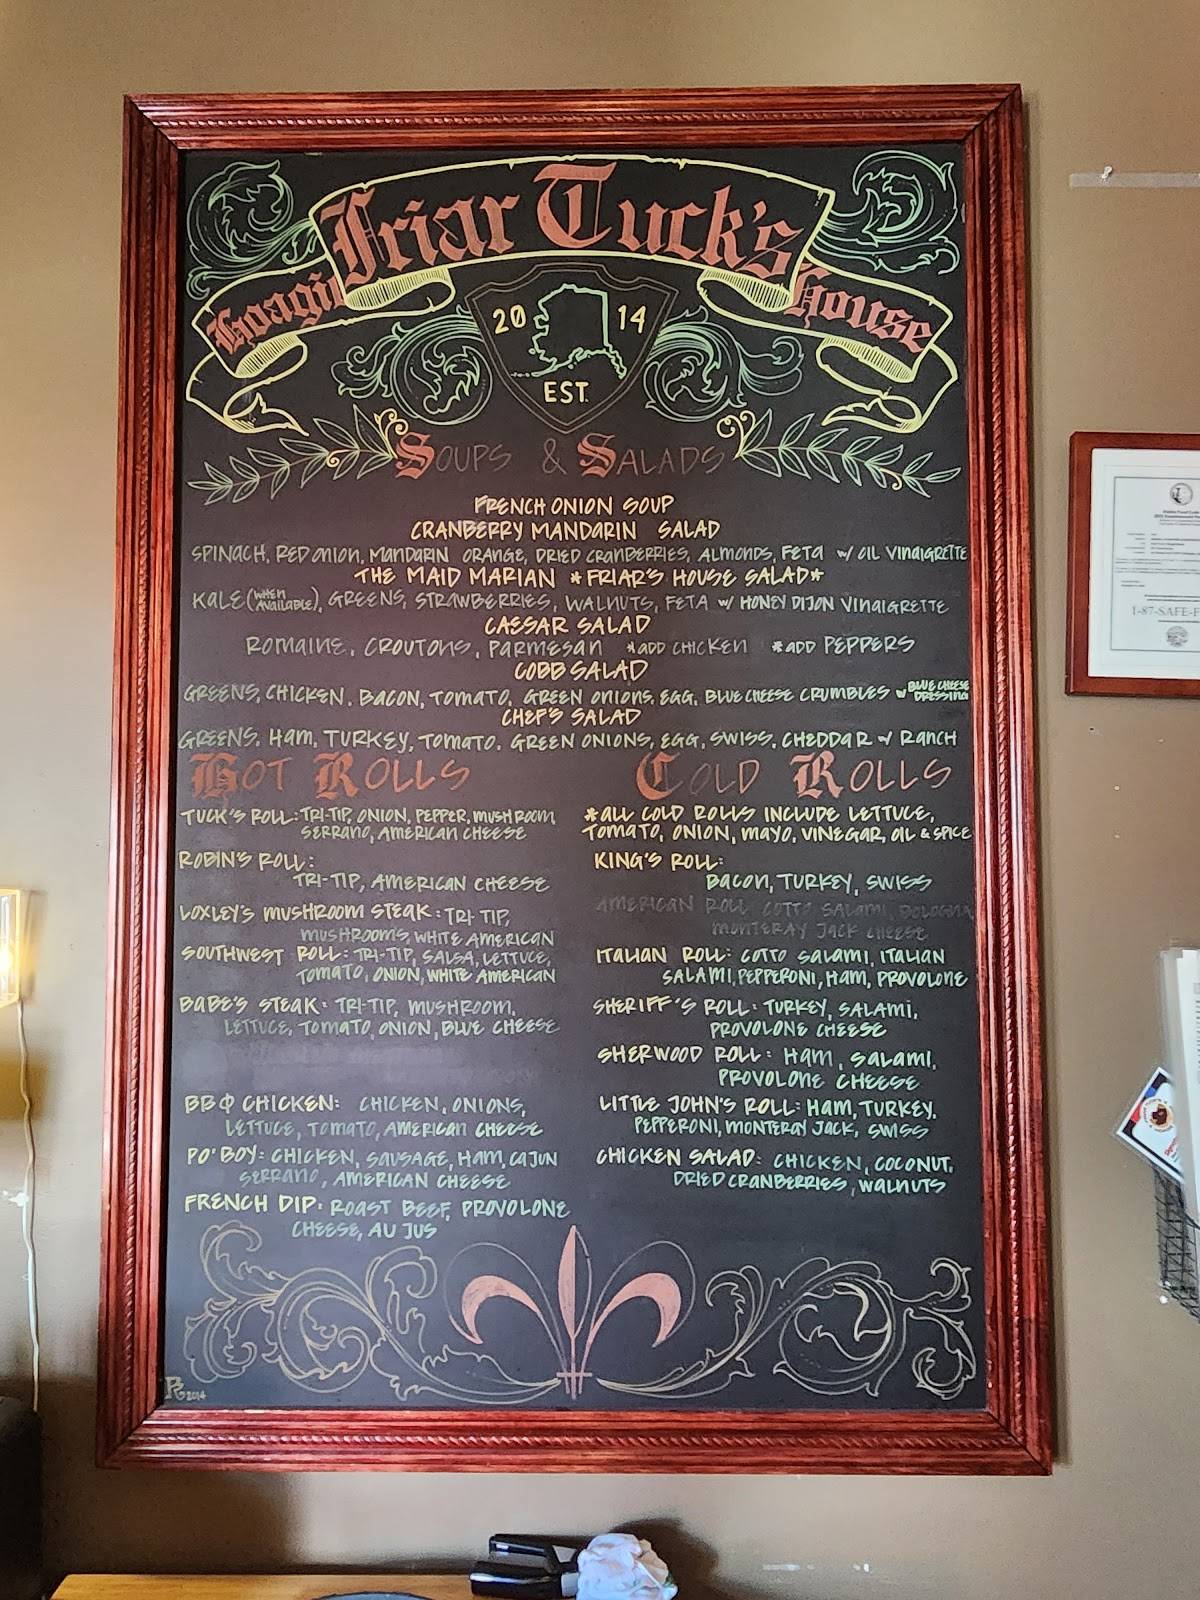 Friar Tuck's
Hoagie House
20 14
EST.
SOUPS & SALADS
FRENCH ONION SOUP
CRANBERRY MANDARIN SALAD
SPINACH, RED ONION, MANDARIN ORANGE, DRIED CRANBERRIES, ALMONDS, FETA w/ OIL VINAIGRETTE
THE MAID MARIAN *FRIAR'S HOUSE SALAD*
KALE (WHEN AVAILABLE), GREENS, STRAWBERRIES, WALNUTS, FETA w/ HONEY DIJON VINAIGRETTE
CAESAR SALAD
ROMAINE, CROUTONS, PARMESAN *ADD CHICKEN *ADD PEPPERS
COBB SALAD
GREENS, CHICKEN, BACON, TOMATO, GREEN ONIONS, EGG, BLUE CHEESE CRUMBLES w BLUE CHEESE DRESSING
CHEF'S SALAD
GREENS, HAM, TURKEY, TOMATO, GREEN ONIONS, EGG, SWISS, CHEDDAR & RANCH
HOT ROLLS
TUCK'S ROLL: TRI-TIP, ONION, PEPPER, MUSHROOM,
SERRANO, AMERICAN CHEESE
ROBIN'S ROLL:
TRI-TIP, AMERICAN CHEESE
LOXLEY'S MUSHROOM STEAK: TRI-TIP,
MUSHROOMS, WHITE AMERICAN
SOUTHWEST ROLL: TRI-TIP, SALSA, LETTUCE,
TOMATO, ONION, WHITE AMERICAN
BABE'S STEAK: TRI-TIP, MUSHROOM,
LETTUCE, TOMATO, ONION, BLUE CHEESE
BBQ CHICKEN: CHICKEN, ONIONS,
LETTUCE, TOMATO, AMERICAN CHEESE
PO' BOY: CHICKEN, SAUSAGE, HAM, CAJUN
SERRANO, AMERICAN CHEESE
FRENCH DIP: ROAST BEEF, PROVOLONE
CHEESE, AU JUS
COLD ROLLS
*ALL COLD ROLLS INCLUDE LETTUCE,
TOMATO, ONION, MAYO, VINEGAR, OIL & SPICE
KING'S ROLL:
BACON, TURKEY, SWISS
AMERICAN ROLL COTTO SALAMI, BOLOGNA,
MONTERAY JACK CHEESE
ITALIAN ROLL: COTTO SALAMI, ITALIAN
SALAMI, PEPPERONI, HAM, PROVOLONE
SHERIFF'S ROLL: TURKEY, SALAMI,
PROVOLONE CHEESE
SHERWOOD ROLL: HAM, SALAMI,
PROVOLONE CHEESE
LITTLE JOHN'S ROLL: HAM, TURKEY,
PEPPERONI, MONTERAY JACK, SWISS
CHICKEN SALAD: CHICKEN, COCONUT,
DRIED CRANBERRIES, WALNUTS
2014
1-87-SAFE-F